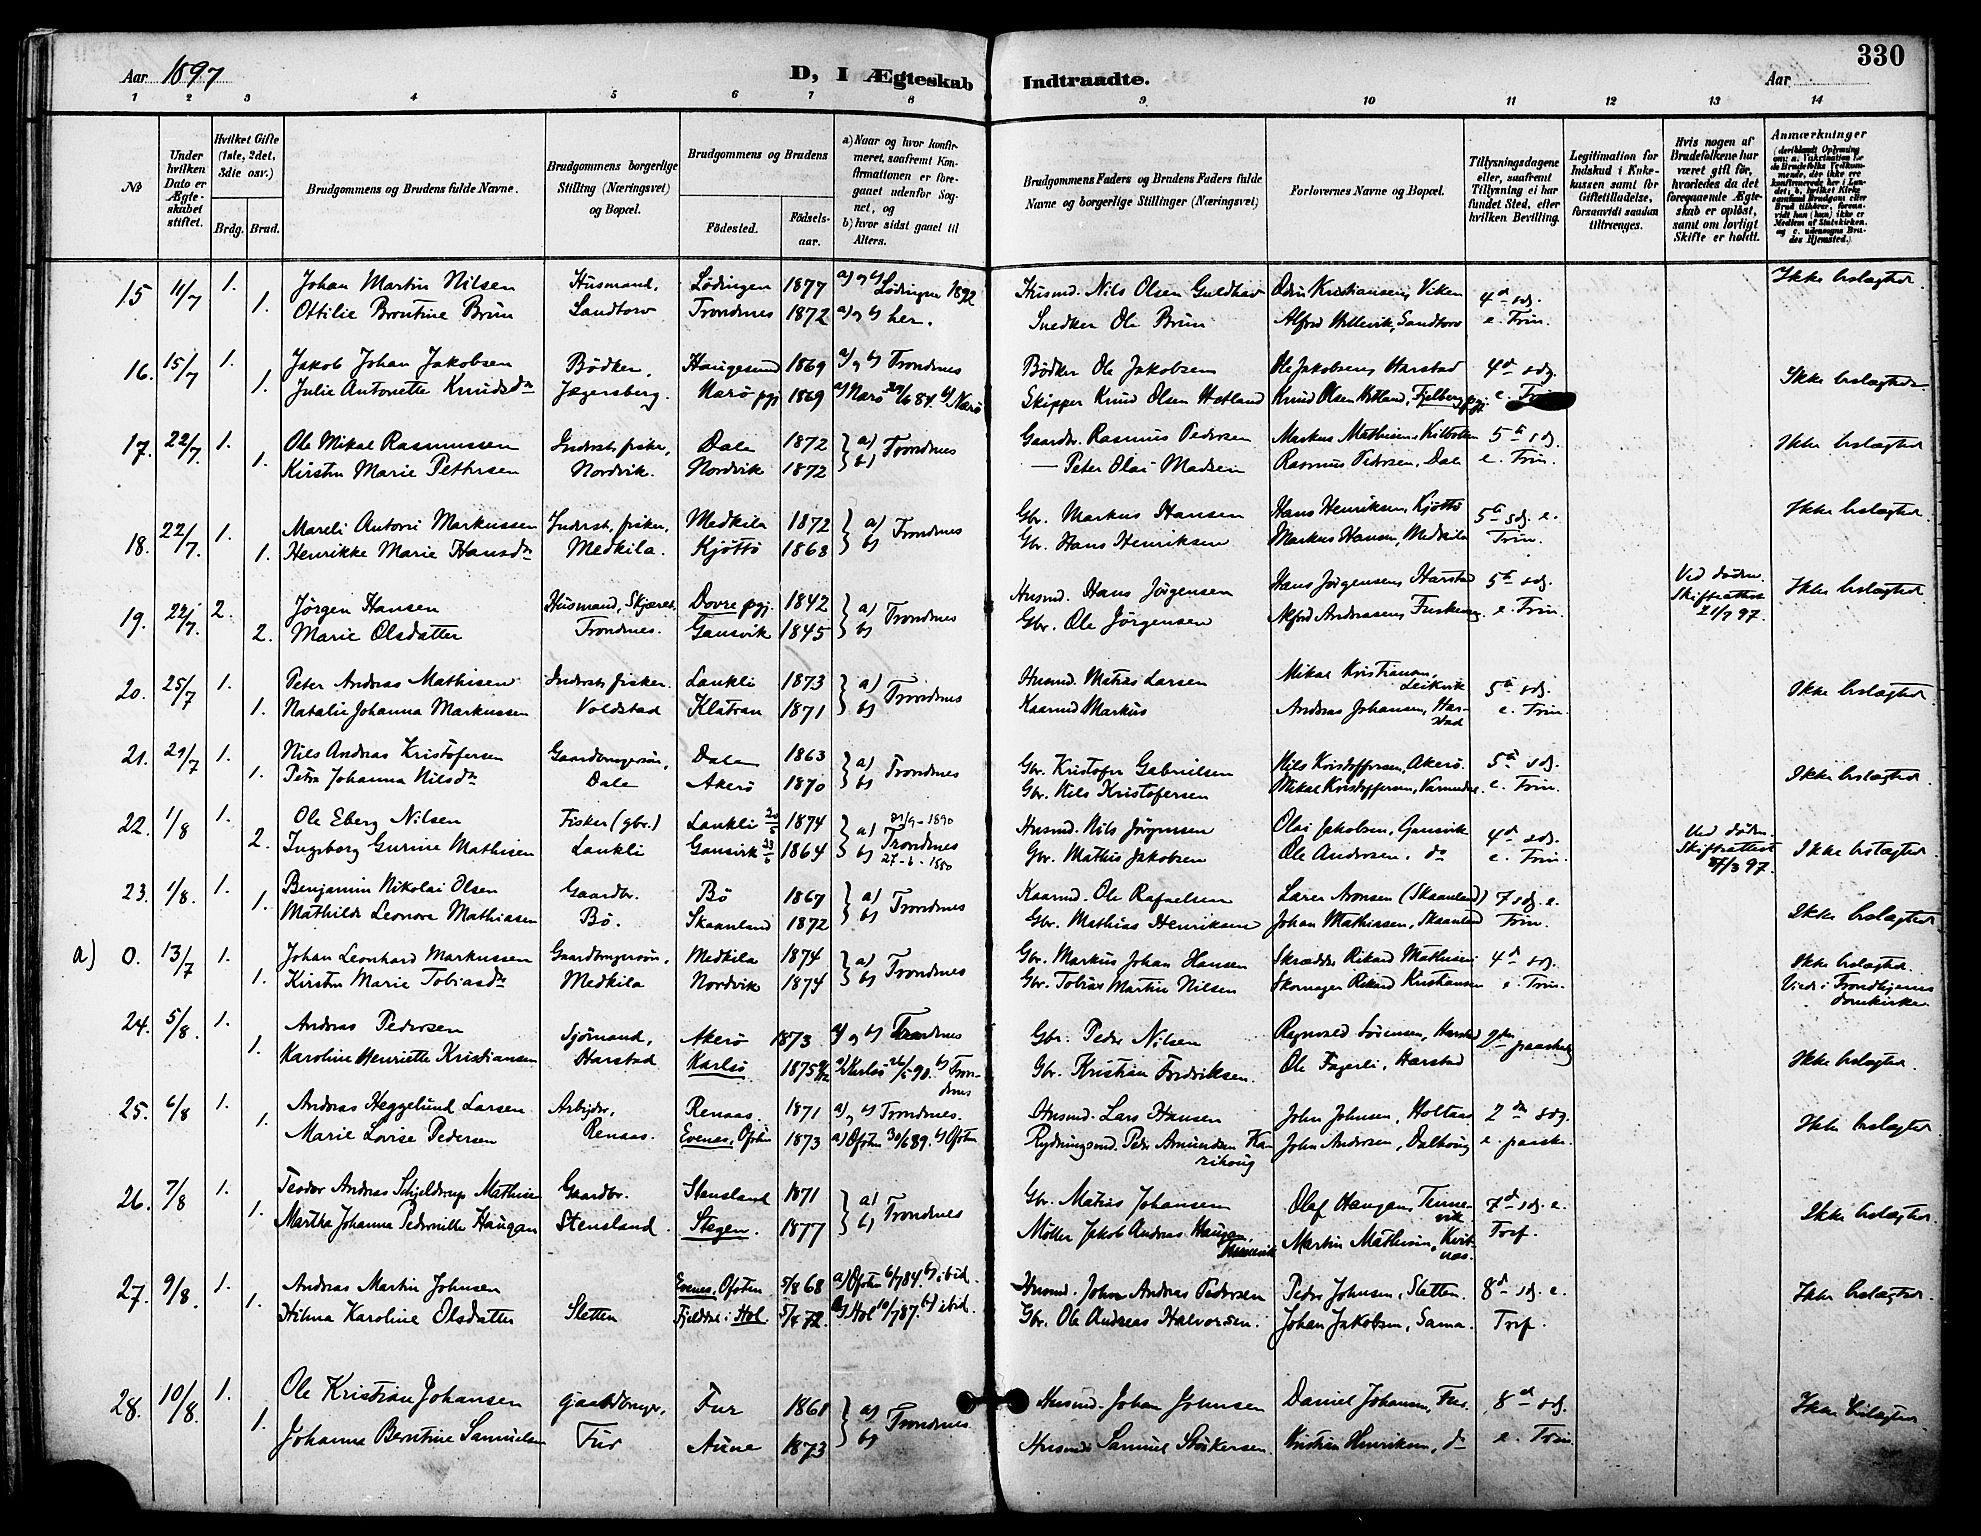 330
Aar 1897
D, I Ægteskab Indtraadte.
Aar
1 2 3 4 5 6 7 8 9 10 11 12 13 14
No
Under hvilken Dato er Ægteskabet stiftet.
Hvilket Gifte (1ste, 2det, 3die osv.)
Brdg. Brud.
Brudgommens og Brudens fulde Navne.
Brudgommens borgerlige Stilling (Næringsvei) og Bopæl.
Brudgommens og Brudens
Fødested. Fødselsaar.
a) Naar og hvor konfirmeret, saafremt Konfirmationen er foregaaet udenfor Sognet, og
b) hvor sidst gaaet til Alters.
Brudgommens Faders og Brudens Faders fulde Navne og borgerlige Stillinger (Næringsvei)
Forlovernes Navne og Bopæl.
Tillysningsdagene eller, saafremt Tillysning ei har fundet Sted, efter hvilken Bevilling.
Legitimation for Indskud i Enkekassen samt for Giftetilladelse, forsaavidt saadan tiltrænges.
Hvis nogen af Brudefolkene har været gift før, hvorledes da det foregaaende Ægteskab er opløst, samt om lovligt Skifte er holdt.
Anmærkninger
15 11/7 1. Johan Martin Nilsen Husmand, Lødingen 1877 a) og b) Lødingen 1892 Husmd. Nils Olsen Guldhav Odin Kristiansen, Viken 4d sdg. Ikke beslægted.
1. Ottilie Brontine Brun Sandtorv Trondenes 1872 a) og b) her. Snedker Ole Brun Alfred Hellevik, Sandtorv e. Trin.
16. 15/7 1. Jakob Johan Jakobsen Bødker, Haugesund 1869 a) og b) Trondenes Bødker Ole Jakobsen Ole Jakobsen, Harstad 4d sdg. Ikke beslægtede
1. Julie Antonette Knudsdr Jægersberg. Nærø pgj 1869 a) Nærø 29/6 84. b) Nærø Skipper Knud Olsen Hetland Knud Olsen Hetland, Fjelberg pgj. e. Trin.
17. 22/7 1. Ole Mikal Rasmussen Inderst, fisker, Dale 1872 a) b) Trondenes Gaardbr. Rasmus Pedersen Markus Mathisen, Kilbotn 5te sdg. Ikke beslægted
1. Kirsten Marie Pettersen Nordvik. Nordvik 1872 — Peter Olai Madsen Rasmus Pedersen, Dale e. Trin.
18. 22/7 1. Mareli Antoni Markussen Inderst, fisker, Medkila 1872 a) b) Trondenes Gbr. Markus Hansen Hans Henriksen, Kjøttø 5te sdg. e. Ikke beslægted.
1. Henrikke Marie Hansdr Medkila. Kjøttø 1863 Gbr. Hans Henriksen Markus Hansen, Medkila Trin.
19. 22/7. 2. Jørgen Hansen Husmand, Skjæret, Dovre pgj. 1842 a) b) Trondenes Husmd. Hans Jørgensen Hans Jørgensen, Harstad 5te sdg. Ved døden. Skifteattest 21/7 97. Ikke beslægted
2. Marie Olsdatter Trondenes. Gansvik 1845 Gbr. Ole Jørgensen Alfred Andreassen, Fuskevaag e. Trin.
20. 25/7 1. Peter Andreas Mathisen Inderst, fisker. Lankli 1873 a) b) Trondenes Husmd. Matias Larsen Mikal Kristiansen, Leikvik 5te sdg. Ikke beslægted
1. Natalie Johanna Markussen Voldstad Klatran 1871 Kaarmd Markus Andreas Johansen, Harstad e. Trin.
21. 29/7 1. Nils Andreas Kristofersen Gaardbrugersøn, Dale 1863 a) b) Trondenes Gbr. Kristofer Gabrielsen Nils Kristoffersen, Akerø. 5te sdg. Ikke beslægted
1. Petra Johanna Nilsdr Dale Akerø 1870 Gbr. Nils Kristofersen Mikal Kristoffersen, e. Trin.
22. 1/8 1. Ole Eberg Nilsen Fisker (gbr.) Lankli 20/6 1874 a) b) Trondenes 21/9 - 1890 27-6-1880 Husmd. Nils Jørgensen Olai Jakobsen, Gansvik 4d sdg. Ved døden. Skifteattest /3 97. Ikke beslægted
2. Ingeborg Gurine Mathisen Lankli Gansvik 23/6 1864 Gbr. Mathis Jakobsen Ole Andersen, do e. Trin.
23. 1/8. 1. Benjamin Nikolai Olsen Gaardbr. Bø 1867 a) b) Trondenes Kaarmd. Ole Rafaelsen Lars Aronsen (Skaanland) 7 sdg. e. Ikke beslægted
1. Mathilde Leonora Mathiasen Bø. Skaanland 1872 Gbr. Mathias Henriksen Johan Mathiassen, Skaanland Trin.
a) 0. 13/7 1. Johan Leonhard Markussen Gaardbrugersøn, Medkila 1874 a) b) Trondenes Gbr. Markus Johan Hansen Skrædder Rikard Mathisen 4d sdg. Ikke beslægted.
1. Kirsten Marie Tobiasdr Medkila Nordvik 1874 Gbr. Tobias Martin Nilsen Skomager Rikard Kristiansen e. Trin. Viede i Trondhjems domkirke.
24. 5/8. 1. Andreas Pedersen Sjømand, Akerø 1873 a) og b) Trondenes Gbr. Peder Nilsen Ragnvald Sørensen, Harstad 2den paaskedg Ikke beslægted.
1. Karoline Henriette Kristiansen Harstad Karlsø 1875 a) Karlsø 26/6 90. b) Trondenes Gbr. Kristian Fredriksen. Ole Fagerli, Harstad
25. 6/8 1. Andreas Heggelund Larsen Arbeider, Renaas. 1871 a) og b) Trondenes. Husmd. Lars Hansen John Johnsen, Holtaas 2den sdg. Ikke beslægted
1. Marie Lovise Pedersen Renaas. Evenes, Ofoten 1873 a) Ofoten 30/6 89. b) Ofoten Rydningsmd. Peder Amundsen Karihaug John Andersen, Dalhaug e. paaske.
26. 7/8 1. Teodor Andreas Schjeldrup Mathisen Gaardbr. Stensland 1871 a) b) Trondenes Gbr. Matias Johansen Olaf Haugan, Tennevik 7d sdg. e. Ikke beslægted.
1. Martha Johanna Pedernille Haugan Stensland. Stegen. 1877 Møller Jakob Andreas Haugan, Tennevik Martin Mathisen, Kvitnes. Tref.
27. 9/8. 1. Andreas Martin Johnsen Evenes, Ofoten 5/8 68 a) Ofoten 6/7 84. b) ibid. Husmd. John Andreas Pedersen Peder Johnsen, Sletten. 8d sdg. e. Ikke beslægted.
1. Hilma Karoline Olsdatter Sletten Fjelddal i Hol. 5/4 72 a) Hol 10/7 87. b) ibid. Gbr. Ole Andreas Halvorsen. Johan Jakobsen, Sama. Tref.
28. 10/8. 1. Ole Kristian Johansen Gaardbruger, Fur 1861 a) b) Trondenes. Husmd. Johan Johnsen Daniel Johansen, Fur. 8d sdg. Ikke beslægted
1. Johanna Berntine Samuelsen Fur Aune 1873 Husmd. Samuel Kristian Henriksen, do e. Trin.